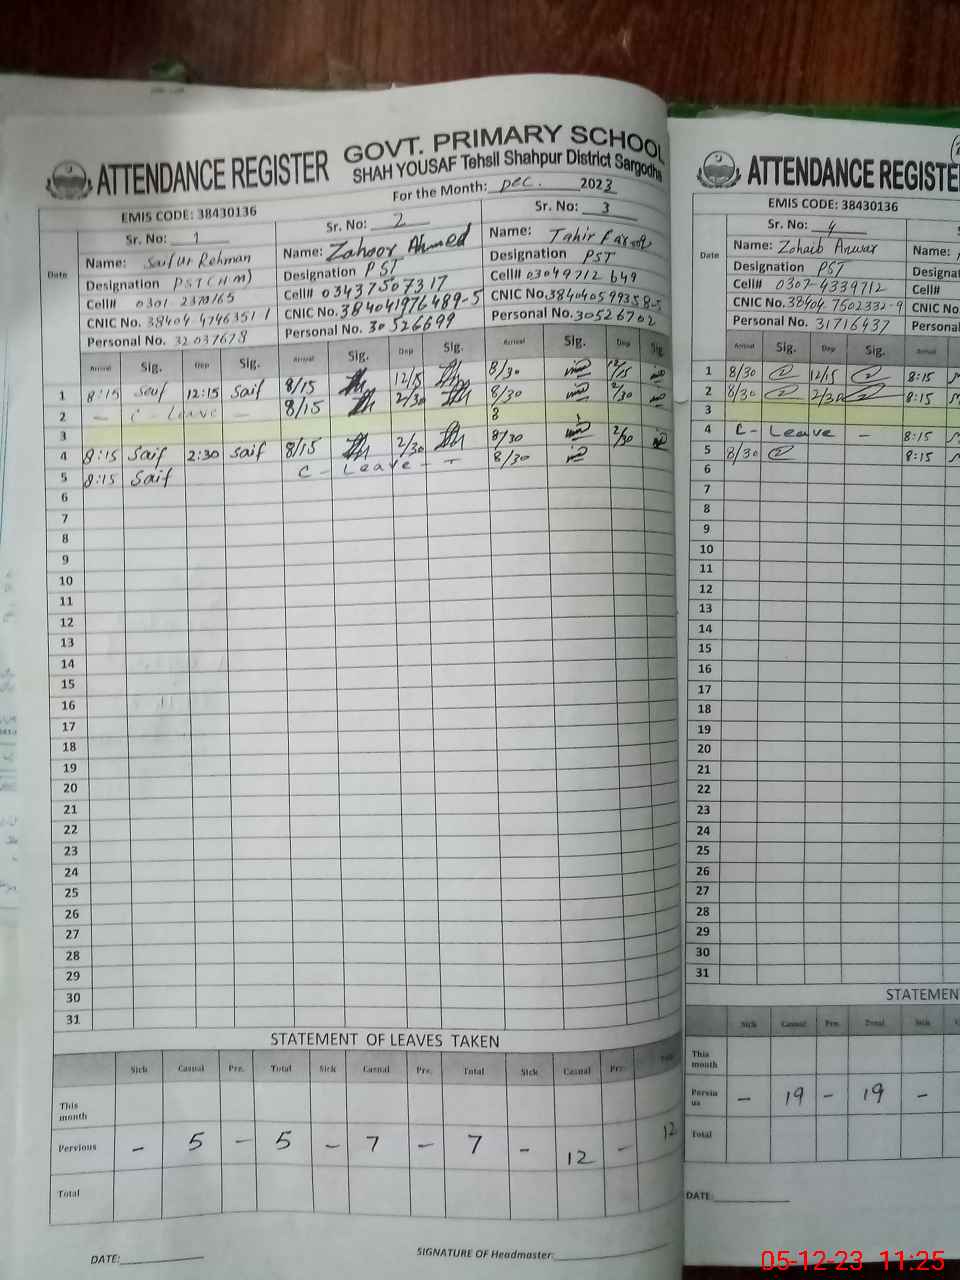 ATTENDANCE REGISTER
GOVT. PRIMARY SCHOOL
SHAH YOUSAF Tehsil Shahpur District Sargodha
For the Month: Dec. 2023
EMIS CODE: 38430136
Sr. No: 1
Sr. No: 2
Sr. No: 3
Date
Name: Saif Ur Rehman
Designation PST(HM)
Cell# 0301-2370165
CNIC No. 38404 4746351 1
Personal No. 32037678
Name: Zahoor Ahmed
Designation PST
Cell# 03437507317
CNIC No. 384041976489-5
Personal No. 30526699
Name: Tahir Farooq
Designation PST
Cell# 03049712649
CNIC No. 3840405993 58-5
Personal No. 30526702
Arrival Sig. Dep Sig. Arrival Sig. Dep Sig. Arrival Sig. Dep Sig.
1 8:15 Saif 12:15 Saif 8/15 12/5 8/30 12/15
2 - C - Leave - 8/15 2/30 8/30 2/30
3 8
4 8:15 Saif 2:30 Saif 8/15 2/30 8/30 2/30
5 8:15 Saif C - Leave - 8/30
6
7
8
9
10
11
12
13
14
15
16
17
18
19
20
21
22
23
24
25
26
27
28
29
30
31
STATEMENT OF LEAVES TAKEN
Sick Casual Pre. Total Sick Casual Pre. Total Sick Casual Pre. Total
This month
Pervious - 5 - 5 - 7 - 7 - 12 - 12
Total
DATE:
SIGNATURE OF Headmaster:
ATTENDANCE REGISTE
EMIS CODE: 38430136
Sr. No: 4
Date
Name: Zohaib Anwar
Designation PST
Cell# 0307-4339712
CNIC No. 38404 7502332-9
Personal No. 31716437
Name:
Designat
Cell#
CNIC No.
Personal
Arrival Sig. Dep Sig. Arrival
1 8/30 12/15 8:15
2 8/30 2/30 8:15
3
4 C - Leave - 8:15
5 8/30 8:15
6
7
8
9
10
11
12
13
14
15
16
17
18
19
20
21
22
23
24
25
26
27
28
29
30
31
STATEMEN
Sick Casual Pre. Total Sick
This month
Pervious - 19 - 19 -
Total
DATE:
05-12-23 11:25